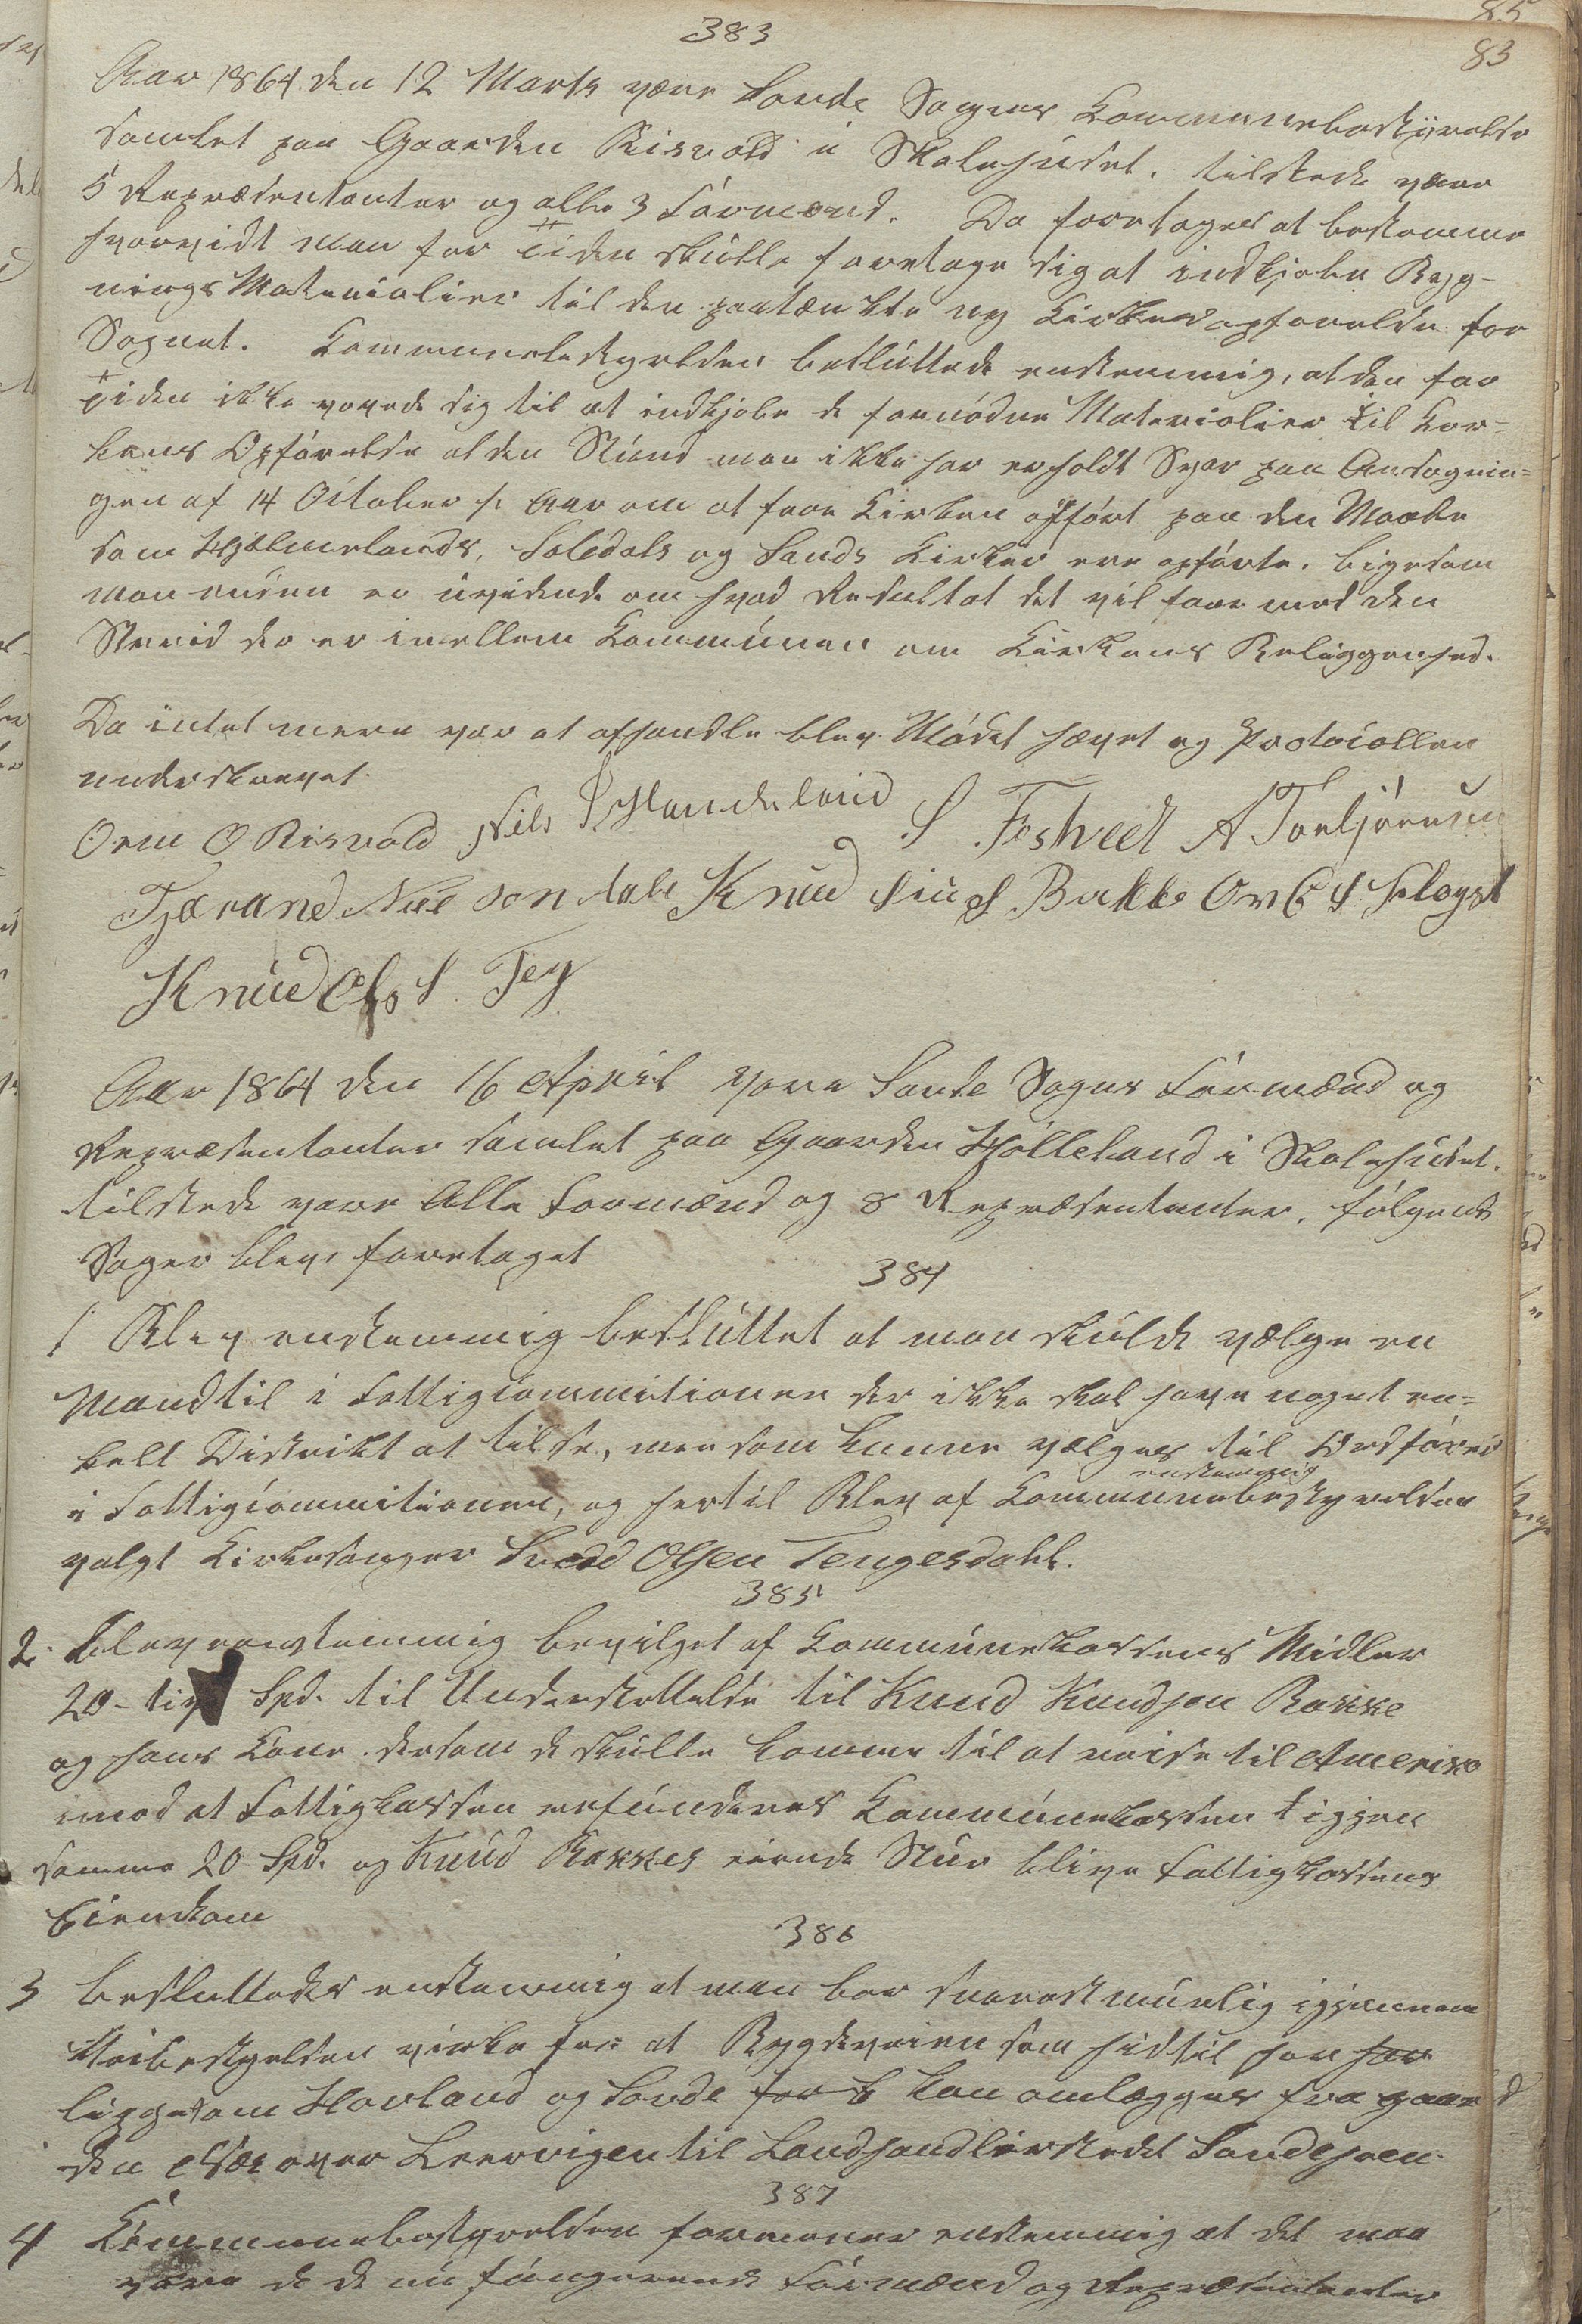 85
383
83
Aar 1864 den 12 Marts vare Sovde Sogns Kommunebestyrelse
samlet paa Gaarden Risvold i Skolehuset. tilstede vare
5 Repræsentanter og alle 3 Formænd. Da foretoges at bestemme
hvorvidt man for Tiden skulle foretage sig at indkjøbe Byg-
nings Materialier til den paatænkte ny Kirkes opførelse for
Sognet. Kommunebestyrelsen besluttede enstemmig, at den for
Tiden ikke vovede sig til at indkjøbe de fornødne Materialier til Kir-
kens Opførelse al den Stund man ikke har erholdt Svar paa Ansøgnin-
gen af 14 October f. Aar om at faae Kirken opført paa den Maade
som Hjelmelands, Suledals og Sands Kirker ere opførte. ligesom
man endnu er uvidende om hvad Resultat det vil faae med den
Streid der er imellem Kommunen om Kirkens Beliggenhed.
Da intet mere var at afhandle blev Mødet hævet og Protocollen
underskrevet.
Orm O Risvold Nils Handeland S Fostvedt A Tonljørnsen
Tjærand Nielson Knud Bakke
Knud Teg
Aar 1864 den 16 April vare Sovde Sogns Formænd og
Repræsentanter samlet paa Gaarden Hølleland i Skolehuset.
tilstede vare Alle Formænd og 8 Repræsentanter, følgende
Sager bleve foretaget
384
1 Blev enstemmig besluttet at man skulde vælge en
Mand til i Fattigcommitionen der ikke skal have noget en-
kelt Distrikt at tilse, men som kunne vælges til Ordfører
enstemmig
i Fattigcommitionen, og hertil Blev af Kommunebestyrelsen
valgt Kirkesanger Svedd Olsen Tengesdahl.
385
2. blev eenstemmig bevilget af Kommunekassens Midler
20 - tive Spd. til Understøttelse til Knud Knudsen Bakke
og hans Kone dersom de skulle komme til at reise til Amerika
imod at Fattigkassen refunderes Kommunekassen igjen
samme 20 Spd. og Knud Bakkes eiende Stue blive Fattigkassens
Eiendom
386
3 besluttedes enstemmig at man bør snarest muelig igjennem
Veibestyrelsen virke for at Bygdeveien som hidtil har har
ligget om Hovland og Sovde kan omlægges fra gaar
den over Leervigen til Landhandlerstedet Sovdehøen
387
4 Kommunebestyrelsen formener enstemmig at det maa
være de de nu fungerende Formænd og Repræsentanter